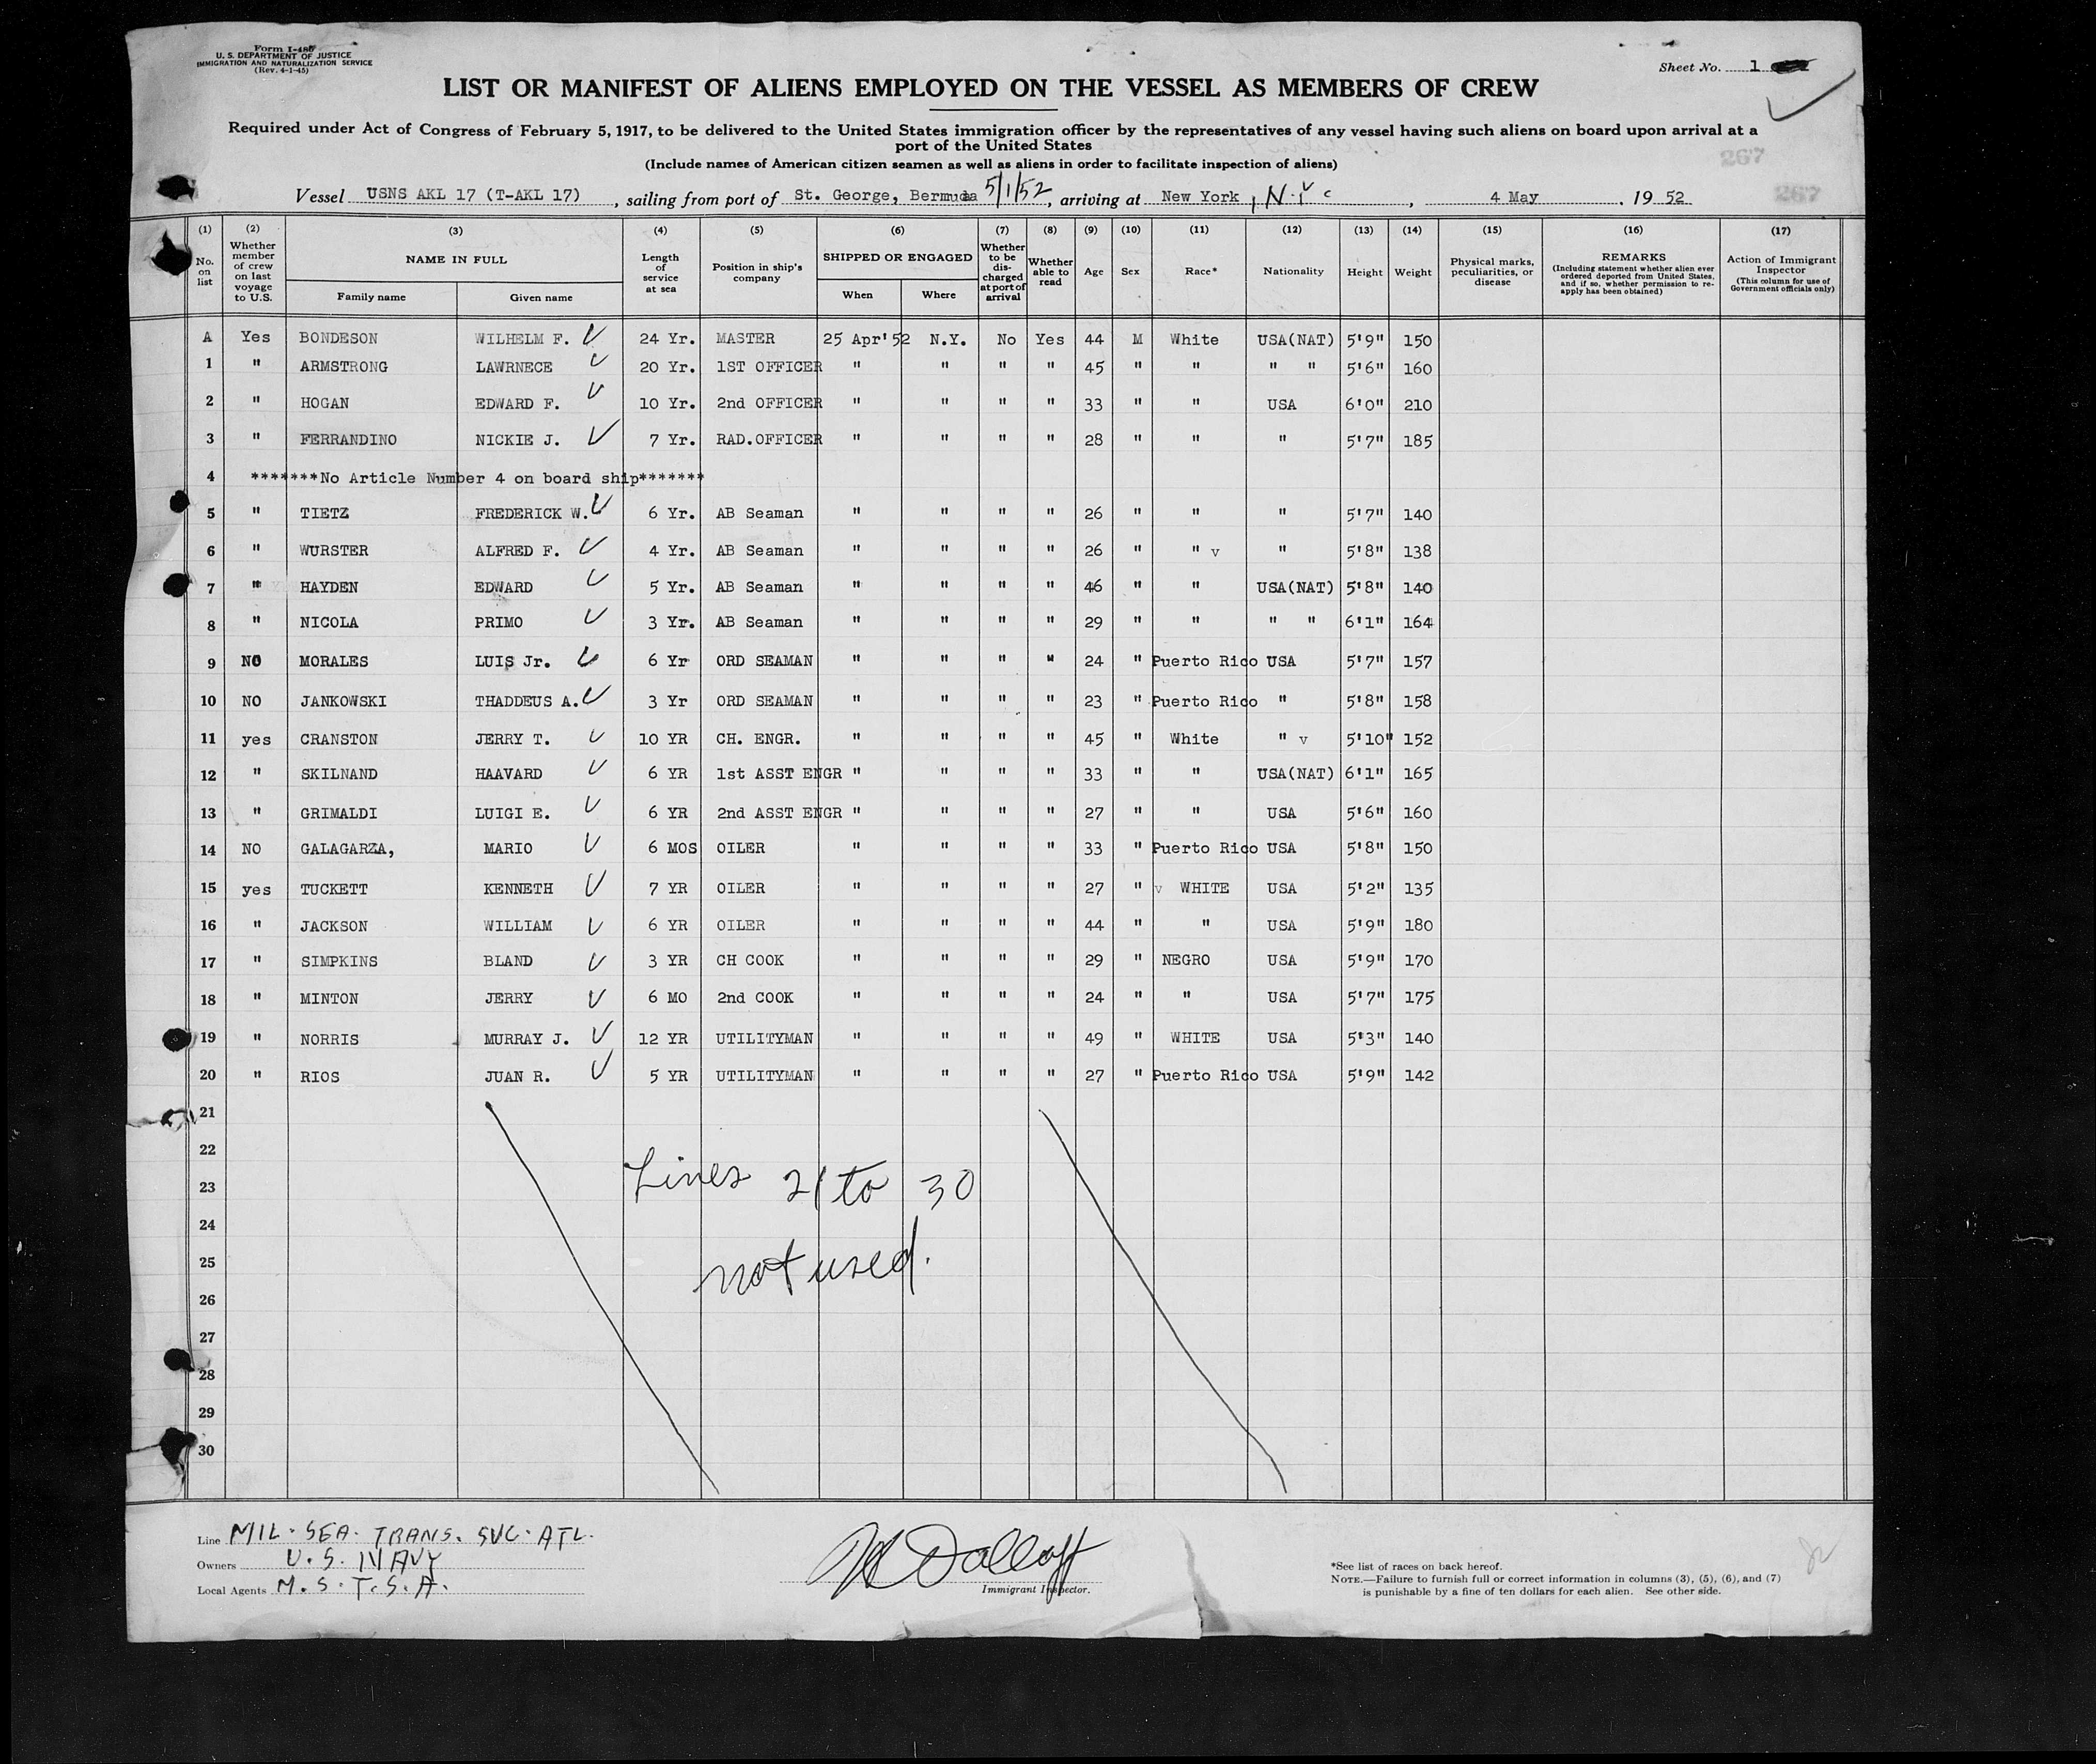 Form I-486
U. S. DEPARTMENT OF JUSTICE
IMMIGRATION AND NATURALIZATION SERVICE
(Rev. 4-1-45)
Sheet No. 1
LIST OR MANIFEST OF ALIENS EMPLOYED ON THE VESSEL AS MEMBERS OF CREW
Required under Act of Congress of February 5, 1917, to be delivered to the United States immigration officer by the representatives of any vessel having such aliens on board upon arrival at a
port of the United States
(Include names of American citizen seamen as well as aliens in order to facilitate inspection of aliens)
267
Vessel USNS AKL 17 (T-AKL 17), sailing from port of St. George, Bermuda 5/1/52, arriving at New York, N.Y., 4 May, 19 52
267
(1) (2) (3) (4) (5) (6) (7) (8) (9) (10) (11) (12) (13) (14) (15) (16) (17)
No. on list Whether member of crew on last voyage to U.S. NAME IN FULL Family name Given name Length of service at sea Position in ship's company SHIPPED OR ENGAGED When Where Whether to be discharged at port of arrival Whether able to read Age Sex Race* Nationality Height Weight Physical marks, peculiarities, or disease REMARKS (Including statement whether alien ever ordered deported from United States, and if so, whether permission to reapply has been obtained) Action of Immigrant Inspector (This column for use of Government officials only)
A Yes BONDESON WILHELM F. 24 Yr. MASTER 25 Apr'52 N.Y. No Yes 44 M White USA(NAT) 5'9" 150
1 " ARMSTRONG LAWRNECE 20 Yr. 1ST OFFICER " " " " 45 " " " " 5'6" 160
2 " HOGAN EDWARD F. 10 Yr. 2nd OFFICER " " " " 33 " " USA 6'0" 210
3 " FERRANDINO NICKIE J. 7 Yr. RAD.OFFICER " " " " 28 " " " 5'7" 185
4 *******No Article Number 4 on board ship*******
5 " TIETZ FREDERICK W. 6 Yr. AB Seaman " " " " 26 " " " 5'7" 140
6 " WURSTER ALFRED F. 4 Yr. AB Seaman " " " " 26 " " v " 5'8" 138
7 " HAYDEN EDWARD 5 Yr. AB Seaman " " " " 46 " " USA(NAT) 5'8" 140
8 " NICOLA PRIMO 3 Yr. AB Seaman " " " " 29 " " " " 6'1" 164
9 NO MORALES LUIS Jr. 6 Yr ORD SEAMAN " " " " 24 " Puerto Rico USA 5'7" 157
10 NO JANKOWSKI THADDEUS A. 3 Yr ORD SEAMAN " " " " 23 " Puerto Rico " 5'8" 158
11 yes CRANSTON JERRY T. 10 YR CH. ENGR. " " " " 45 " White " v 5'10" 152
12 " SKILNAND HAAVARD 6 YR 1st ASST ENGR " " " " 33 " " USA(NAT) 6'1" 165
13 " GRIMALDI LUIGI E. 6 YR 2nd ASST ENGR " " " " 27 " " USA 5'6" 160
14 NO GALAGARZA, MARIO 6 MOS OILER " " " " 33 " Puerto Rico USA 5'8" 150
15 yes TUCKETT KENNETH 7 YR OILER " " " " 27 " v WHITE USA 5'2" 135
16 " JACKSON WILLIAM 6 YR OILER " " " " 44 " " USA 5'9" 180
17 " SIMPKINS BLAND 3 YR CH COOK " " " " 29 " NEGRO USA 5'9" 170
18 " MINTON JERRY 6 MO 2nd COOK " " " " 24 " " USA 5'7" 175
19 " NORRIS MURRAY J. 12 YR UTILITYMAN " " " " 49 " WHITE USA 5'3" 140
20 " RIOS JUAN R. 5 YR UTILITYMAN " " " " 27 " Puerto Rico USA 5'9" 142
21
22
23 Lines 21 to 30
24
25 not used.
26
27
28
29
30
Line MIL. SEA. TRANS. SVC. ATL.
Owners U. S. NAVY
Local Agents M. S. T. S. A.
Immigrant Inspector.
*See list of races on back hereof.
NOTE.—Failure to furnish full or correct information in columns (3), (5), (6), and (7)
is punishable by a fine of ten dollars for each alien. See other side.